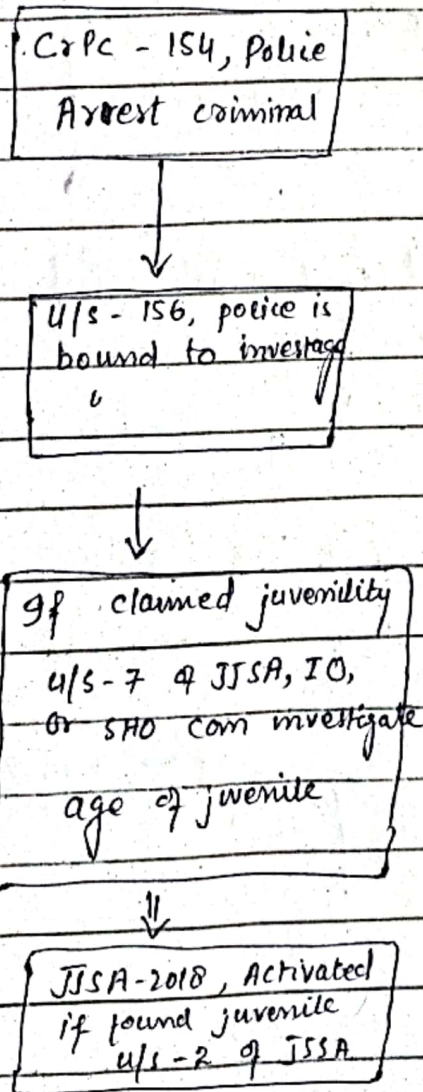 CrPC - 154, Police
Arrest criminal
u/s - 156, police is
bound to investage
If claimed juvenility
u/s - 7 of JJSA, IO,
Or SHO can investigate
age of juvenile
JJSA-2018, Activated
if found juvenile
u/s - 2 of JSSA